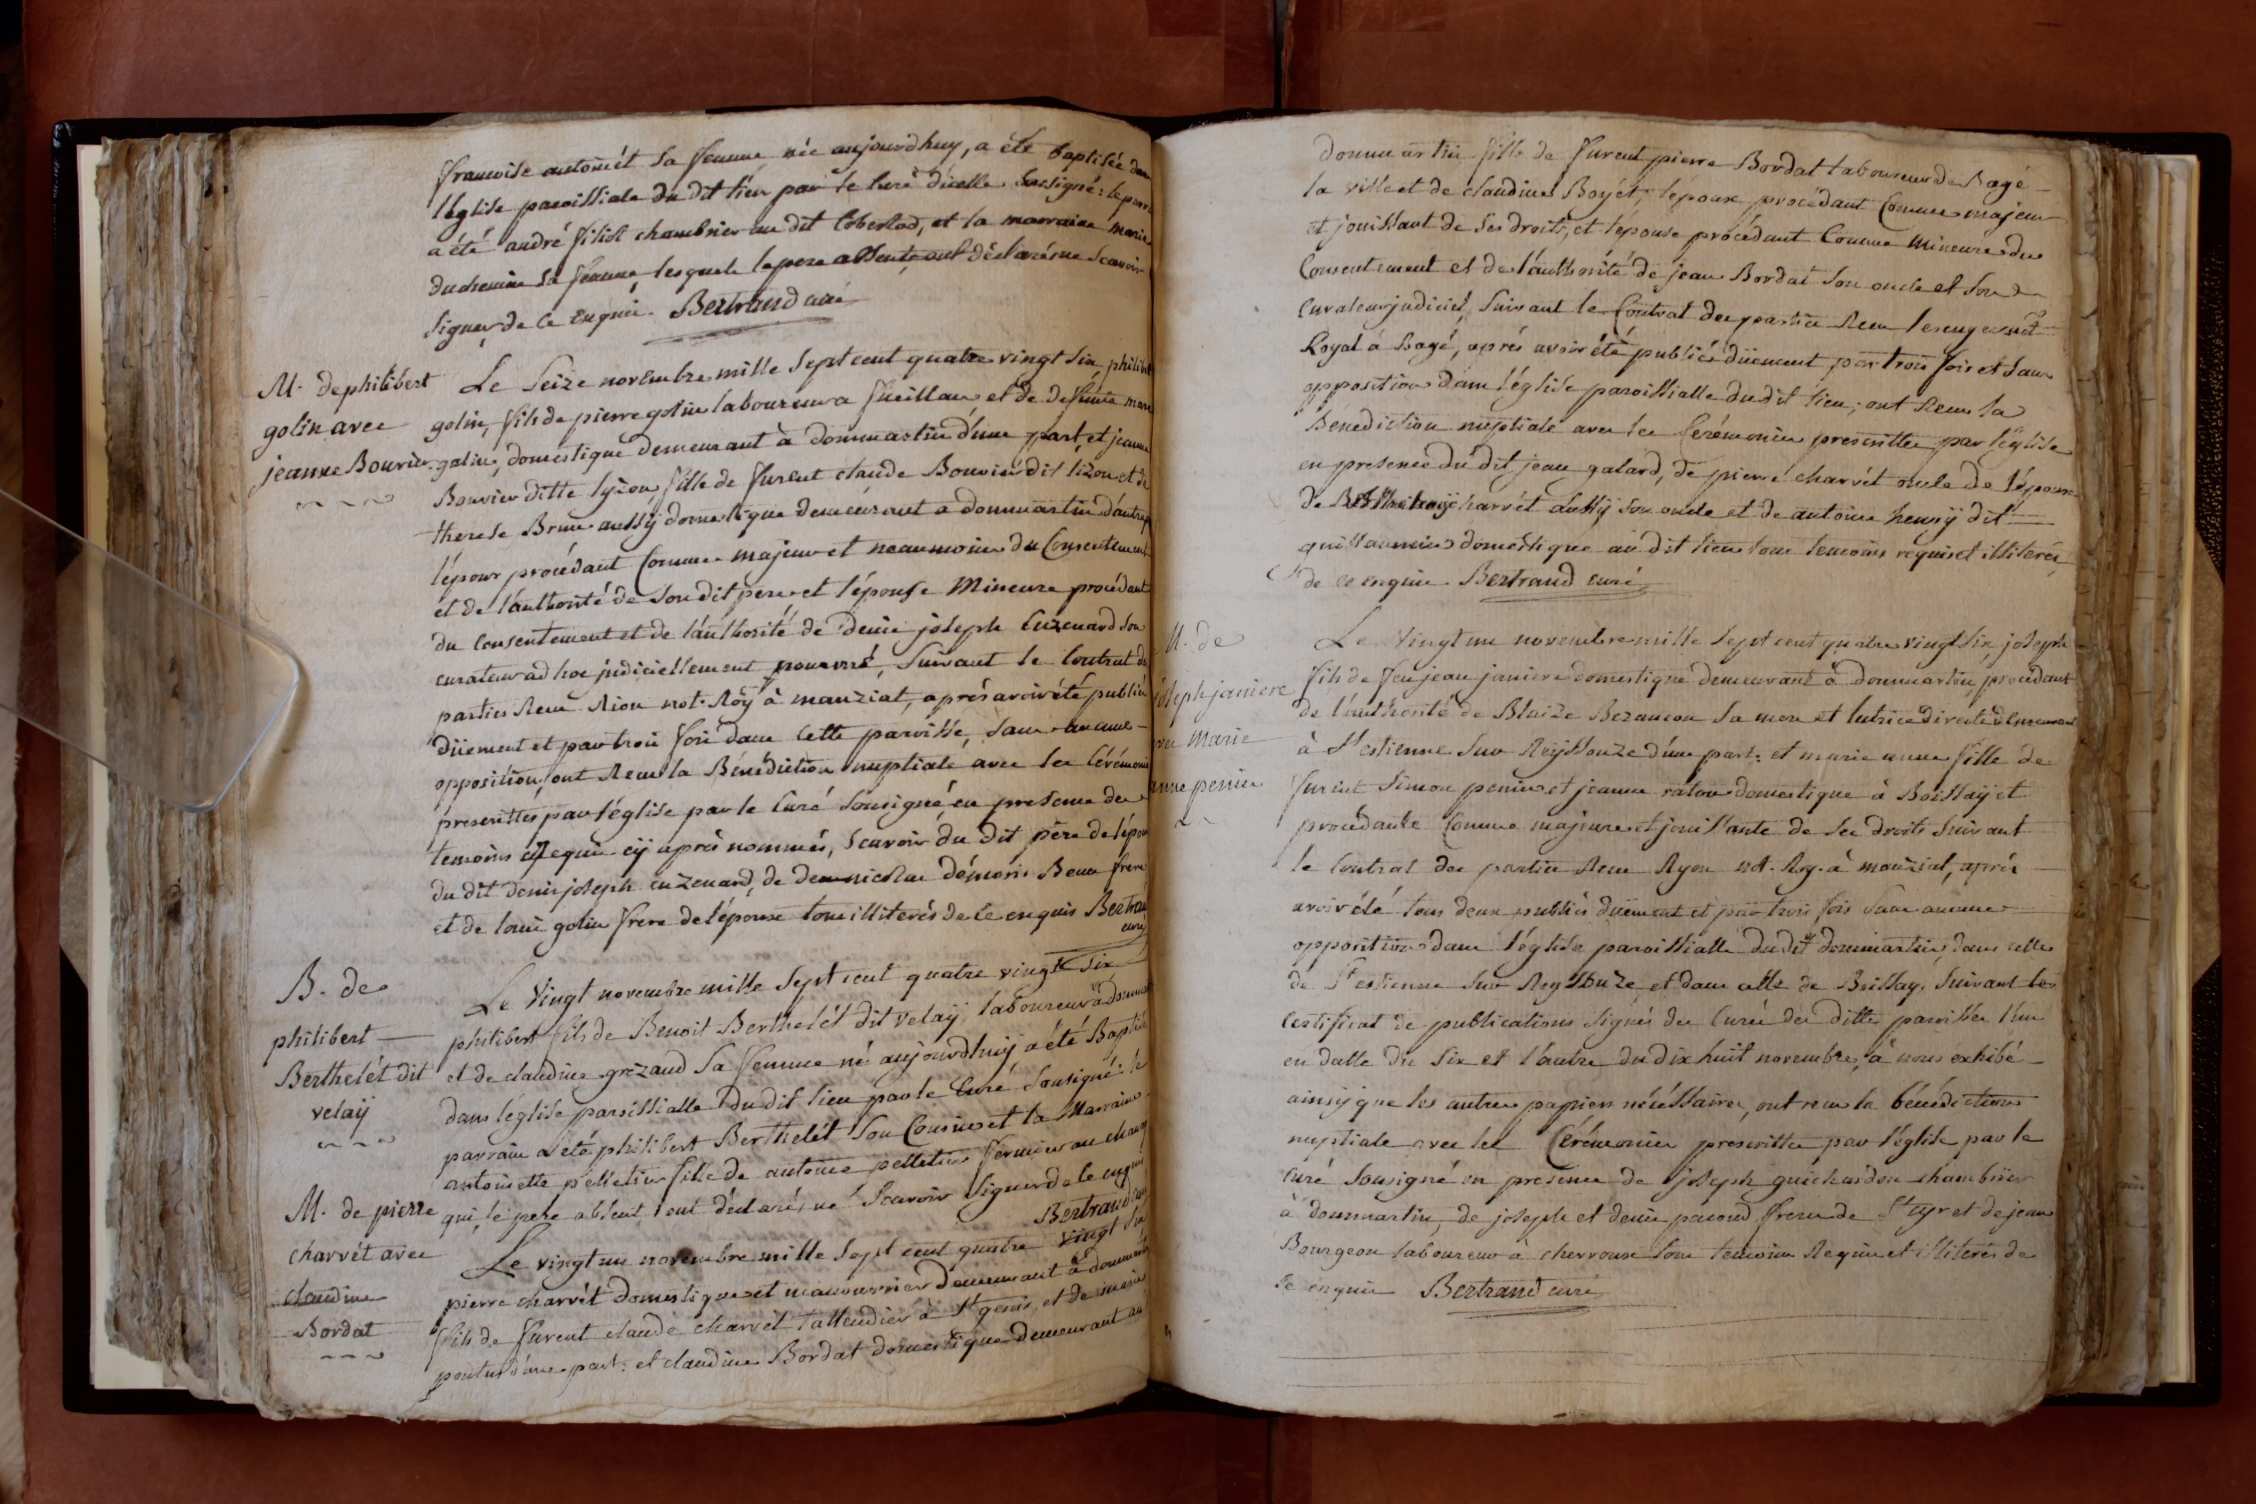 francoise antoinét sa femme née aujourdhuy, a été baptisée dans
l'église paroissiale du dit lieu par le curé d'icelle sousigné: le parrain
a été andré filiol chambrier au dit Cobertod, et la marraine marie
duchemin sa femme, lesquels le pere absent, ont déclaré ne scavoir
signer de ce enquis. Bertrand curé
M. de philibert
golin avec
jeanne Bouvier
Le seize novembre mille sept cent quatre vingt six, philibert
golin, fils de pierre golin laboureur a sueillan et de defunte marie
galin, domestique demeurant à dommartin d'une part, et jeanne
Bouvier ditte lizon, fille de furent claude Bouvier dit lizon et de
therese Brun aussÿ domestique demeurant a dommartin d'autre p
l'époux procédant Comme majeur et neanmoins du Consentement
et de l'authorité de son dit pere et l'épouse Mineure procédant
du consentement et de l'authorité de denis joseph Cuzenard son
curateur ad hoc judiciellement pourvu, suivant le Contrat des
parties Receu Rion not. Roÿ à manziat, aprés avoir été publiés
düement et par trois fois dans cette paroisse, sans aucune
opposition, ont Receu la Bénédiction nuptiale avec les Cérémonies
prescrittes par l'église par le Curé sousigné en presence des
temoins requis cÿ aprés nommés, scavoir du dit père de l'époux
du dit denis joseph cuzenard, de nicolas démoris Beau frere
et de louis golin frere de l'époux tous illiterés de ce enquis Bertrand
curé
B. de
philibert
Berthelét dit
velaÿ
Le Vingt novembre mille sept cent quatre vingt six
philibert fils de Benoit Berthelét dit velaÿ laboureur à dommartin
et de claudine grézaud sa femme né aujourdhuÿ a été Baptisé
dans l'église paroissialle du dit lieu par le Curé sousigné: le
parrain a été philibert Berthelét son Cousin et la Marraine
antoinette pelletier fille de antoine pelletier fermier au champ
qui, le pere absent ont déclaré ne scavoir signer de ce enquis
Bertrand curé
M. de pierre
charvét avec
claudine
Bordat
Le vingt un novembre mille sept cent quatre vingt six
pierre charvét domestique et manouvrier demeurant à dommartin
fils de furent claude charvét tallendier à St genis, et de marie
pontus d'une part: et claudine Bordat domestique demeurant au
dommartin fille de furent pierre Bordat laboureur de Bagé
la ville et de claudine Boyét, l'époux procédant Comme majeur
et jouissant de ses droits, et l'épouse procédant Comme Mineure du
Consentement et de l'authorité de jean Bordat son oncle et son
Curateur judiciel, suivant le Contrat des parties Receu lesenger not
Royal à Bagé, aprés avoir été publiés düement par trois fois et sans
opposition dans l'église paroissialle du dit lieu; ont Receu la
Bénédiction nuptiale avec les Cerémonies prescrittes par l'église
en presence du dit jean galard, de pierre charvét oncle de l'époux
de charvét aussÿ son oncle et de antoine henrÿ dit
guillaumin domestique au dit lieu tous temoins requis et illiterés
de ce enquis. Bertrand curé
M. de
joseph janiere
avec Marie
anne penin
Le vingt un novembre mille sept cent quatre vingt six, joseph
fils de feu jean janiere domestique demeurant à dommartin, procédant
de l'authorité de Blaize Bezancon sa mere et tutrice directe demeurant
à St estienne sur Reÿssouze d'une part: et marie anne fille de
furent simon penin et jeanne ratou domestique à Boissaÿ et
procédante Comme majeure et jouissante de ses droits suivant
le Contrat des parties Receu Ryon not. Roy. à manziat, aprés
avoir été tous deux publiés düement et par trois fois sans aucune
opposition dans l'église paroissialle du dit dommartin, dans celle
de St estienne sur Reyssouze et dans celle de Boissay, suivant les
Certificat de publications signés des Curés des dittes paroisses l'un
en datte du six et l'autre du dix huit novembre, à nous exhibé
ainsÿ que les autres papiers nécéssaires, ont receu la bénédiction
nuptiale avec les Cerémonies prescrittes par l'église par le
Curé sousigné en presence de joseph guichardon chambrier
à dommartin, de joseph et denis pacoud freres de St cyr et de jean
Bourgeon laboureur à chevroux tous temoins Requis et illiterés de
ce enquis Bertrand curé